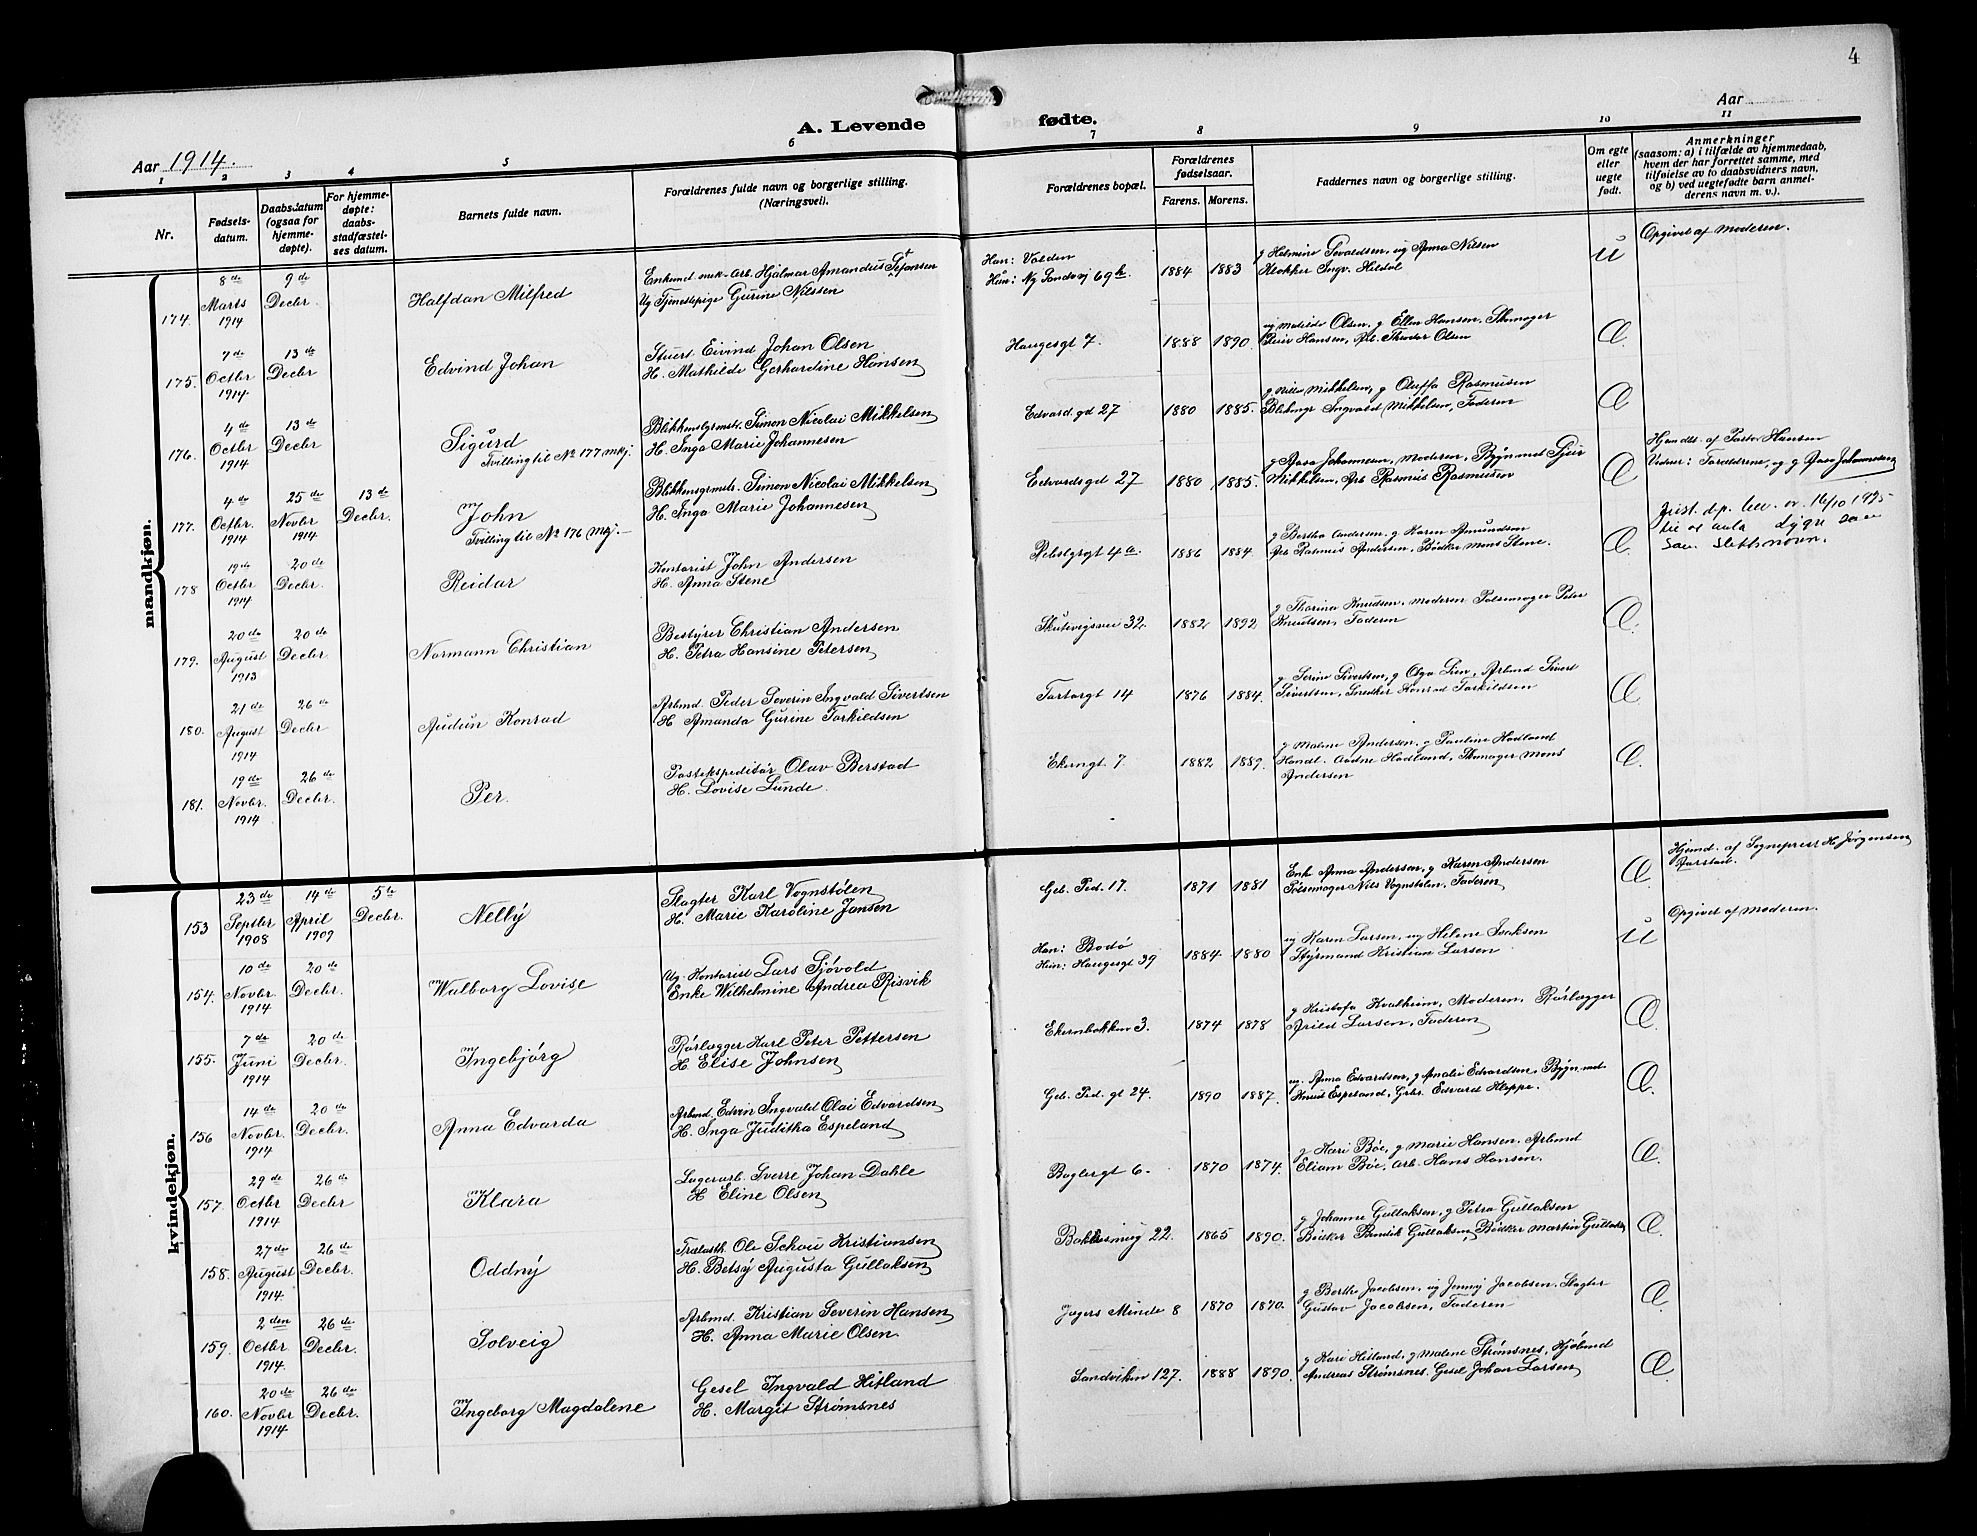 4
A. Levende fødte.
Aar 1914.
Aar
1 2 3 4 5 6 7 8 9 10 11
Nr.
Fødsels-
datum.
Daabsdatum
(ogsaa for
hjemme-
døpte).
For hjemme-
døpte:
daabs-
stadfæstel-
ses datum.
Barnets fulde navn.
Forældrenes fulde navn og borgerlige stilling.
(Næringsvei).
Forældrenes bopæl.
Forældrenes
fødselsaar.
Farens. Morens.
Faddernes navn og borgerlige stilling.
Om egte
eller
uegte
født.
Anmerkninger
(saasom: a) i tilfælde av hjemmedaab,
hvem der har forrettet samme, med
tilføielse av to daabsvidners navn,
og b) ved uegtefødte barn anmel-
derens navn m. v.).
mandkjøn.
174. 8de Marts 1914 9de Decbr. Halfdan Milfred
Enkemd mek-Arb. Hjalmar Amandus
Ug Tjenestepige Gurine Nilssen
Han: Volden
Hun: Ny Sandvj 69 b. 1884 1883
g Helmine Sevaldsen, ug Anna Nilsen
Klokker Ingv. Hildal
u
Opgivet af moderen.
175. 7de Octbr 1914 13de Decbr Edvind Johan
Stuert Eivind Johan Olsen
H. Mathilde Gerhardine Hansen
Haugesgt 7. 1888 1890
ug Matilde Olsen, g Ellen Hansen, Skomager
Peder Hansen, Arb. Theodor Olsen
Æ
176. 4de Octbr 1914 13de Decbr Sigurd
Tvilling til No 177 mkj.
Blikkenslgrmstr. Simon Nicolai Mikkelsen
H. Inga Marie Johannesen
Edvard.gd 27 1880 1885.
g Nille Mikkelsen, g Oluffa Rasmusen
Blikslagr Ingvald Mikkelsen, Faderen
Æ
177. 4de Octbr. 1914 25de Novbr 1914 13de Decbr. John
Tvilling til No 176 mkj.
Blikkenslgrmstr. Simon Nicolai Mikkelsen
H. Inga Marie Johannesen
Edvardsgd 27 1880 1885.
g Aasa Johannesen, Moderen, Bygn.md Sjur
Mikkelsen, Arb Rasmus Rasmussen
Æ
Hjmdbt. af Pastor Hansen
Vidner: Forældrene, og g Aasa Johannesen
178 19de Octbr 1914 20de Decbr. Reidar
Kontorist John Andersen
H. Anna Stene
1886 1884
g Bertha Andersen, g Karen Amundsen
Arb Rasmus Andersen, Bødker Mons Stene.
Æ
179. 20de August 1913 20de Decbr. Normann Christian
Bestyrer Christian Andersen
H. Petra Hansine Petersen
Skutevigsvei 32. 1882 1892
g Tharina Knudsen, Moderen Pølsemager Peter
Knudsen, Faderen
Æ
180. 21de August 1914 26de Decbr Audun Konrad
Arbmd. Peder Severin Ingvald Sivertsen
H Amanda Gurine Torkildsen
Tartargt 14 1876 1884.
g Serine Sivertsen, g Olga Lien, Arbmd Sivert
Sivertsen, Snedker Konrad Torkildsen
Æ
181. 19de Novbr. 1914 26de Decbr. Per.
Postekspeditør Olav Berstad
H. Lovise Lunde.
Ekerngt 7 1882 1889.
g Malene Andersen, g Pauline Hadland
Handl. Andre Hadland, Skomager Mons
Andersen
Æ
kvindekjøn.
153 23de Septbr 1908 14de April 1909 5te Decbr. Nelly
Slagter Karl Vognstølen
H. Marie Karoline Jansen
Geb. Ped. 17. 1871 1881
Enke Anna Andersen, g Karen Andersen
Pølsemager Nils Vognstølen, Faderen
Æ
Hjemd. af Sogneprest H. Jørgensen
Aarstad.
154. 10de Novbr. 1914 20de Decbr. Walborg Lovise
Ug. Kontorist Lars Sjøvold
Enke Wilhelmine Andrea Risvik
Han: Bodø
Hun: Haugesgt 39 1884 1880
ug Karen Larsen, ug Helene Isaksen
Styrmand Kristian Larsen
u
Opgivet af moderen.
155. 7de Juni 1914 20de Decbr. Ingebjørg
Rørlægger Karl Peter Pettersen
H. Elise Johnsen
Ekernbakken 3. 1874 1878
g Kristofa Kvalheim, Moderen, Rørlægger
Arild Larsen, Faderen
Æ
156 14de Novbr. 1914 20de Decbr. Anna Edvarda
Arbmd. Edvin Ingvald Olai Edvardsen
H. Inga Juditha Espeland
Geb. Ped. gt 24. 1890 1887.
ug. Anna Edvardsen, g Amalie Edvardsen, Bygn.md.
Knud Espeland, Grbr. Edvard Kleppe
Æ.
157. 29de Octbr 1914 26de Decbr Klara
Lagerarb. Sverre Johan Dahle
H Eline Olsen
Baglergt 6. 1870 1874.
g Kari Bøe, g Marie Hansen. Arbmd
Eliam Bøe, Arb. Hans Hansen.
Æ.
158. 27de August 1914. 26de Decbr. Oddny
Trælasth. Ole Schou Kristiansen
H. Betsy Augusta Gullaksen
22. 1865 1890.
g Johanne Gullaksen, g Petra Gullaksen
Bødker Bendik Gullaksen, Bødker Martin Gullaks
Æ.
159. 2den Octbr. 1914. 26de Decbr. Solveig
Arbmd. Kristian Severin Hansen
H. Anna Marie Olsen.
Jægers Minde 8 1870 1870.
g Berthe Jacobsen, ug Jenny Jacobsen, Slagter
Gustav Jacobsen, Faderen
Æ.
160. 20de Novbr 1914 26de Decbr. Ingeborg Magdalene
Gesel Ingvald Hitland
H. Margit Strømsnes
Sandviken 127. 1888 1890.
g Kari Hitland, g Malene Strømsnes, Kjøbmd
Andreas Strømsnes. Gesel Johan Larsen
Æ